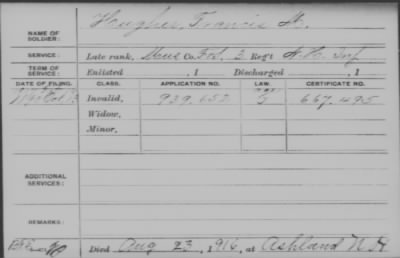 NAME OF SOLDIER: Hughes, Francis M.
SERVICE: Late rank, Mus Co. F & S. 3 Reg't N. H. Inf
TERM OF SERVICE: Enlisted , 1 Discharged , 1
DATE OF FILING. CLASS. APPLICATION NO. LAW. CERTIFICATE NO.
Invalid, 939.652 667.495
Widow,
Minor,
ADDITIONAL SERVICES:
REMARKS:
Died Aug 23, 1916, at Ashland N H